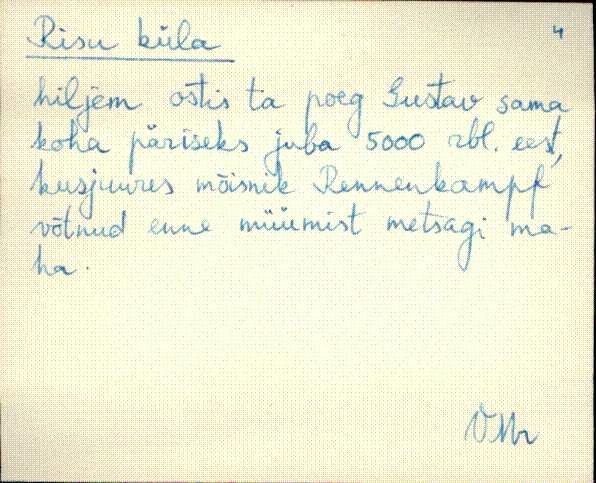 Risu küla
4
hiljem ostis ta poeg Gustav sama
koha päriseks juba 5000 rbl. eest,
kusjuures mõisnik Rennenkampf
võtnud enne müümist metsagi ma-
ha.